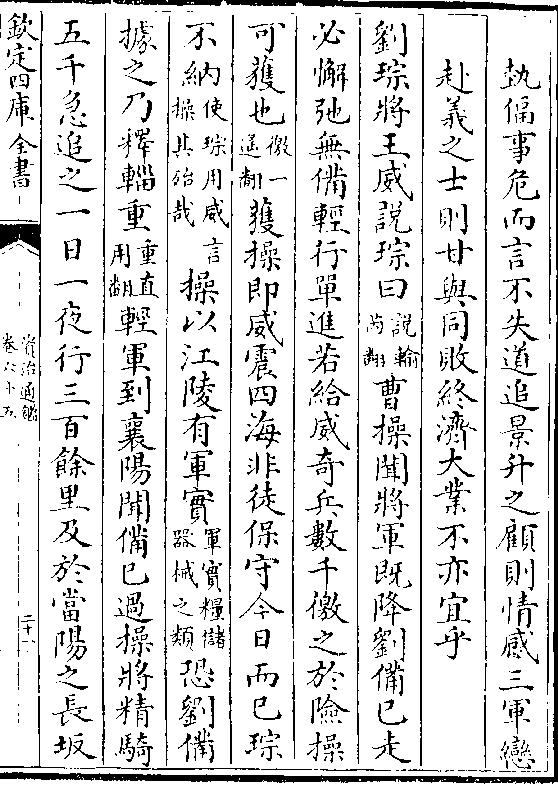 埶偪事危而言不失道追景升之顧則情感三軍戀
赴義之士則甘與同敗終濟大業不亦宜乎
劉琮將王威說琮曰說輸芮翻曹操聞將軍既降劉備已走
必懈弛無備輕行單進若給威奇兵數千徼之於險操
可獲也徼一遥翻獲操即威震四海非徒保守今日而已琮
不納使琮用威言操其殆哉操以江陵有軍實軍實糧儲器械之類恐劉備
據之乃釋輜重重直用翻輕軍到襄陽聞備已過操將精騎
五千急追之一日一夜行三百餘里及於當陽之長坂
欽定四庫全書
資治通鑑
卷六十五